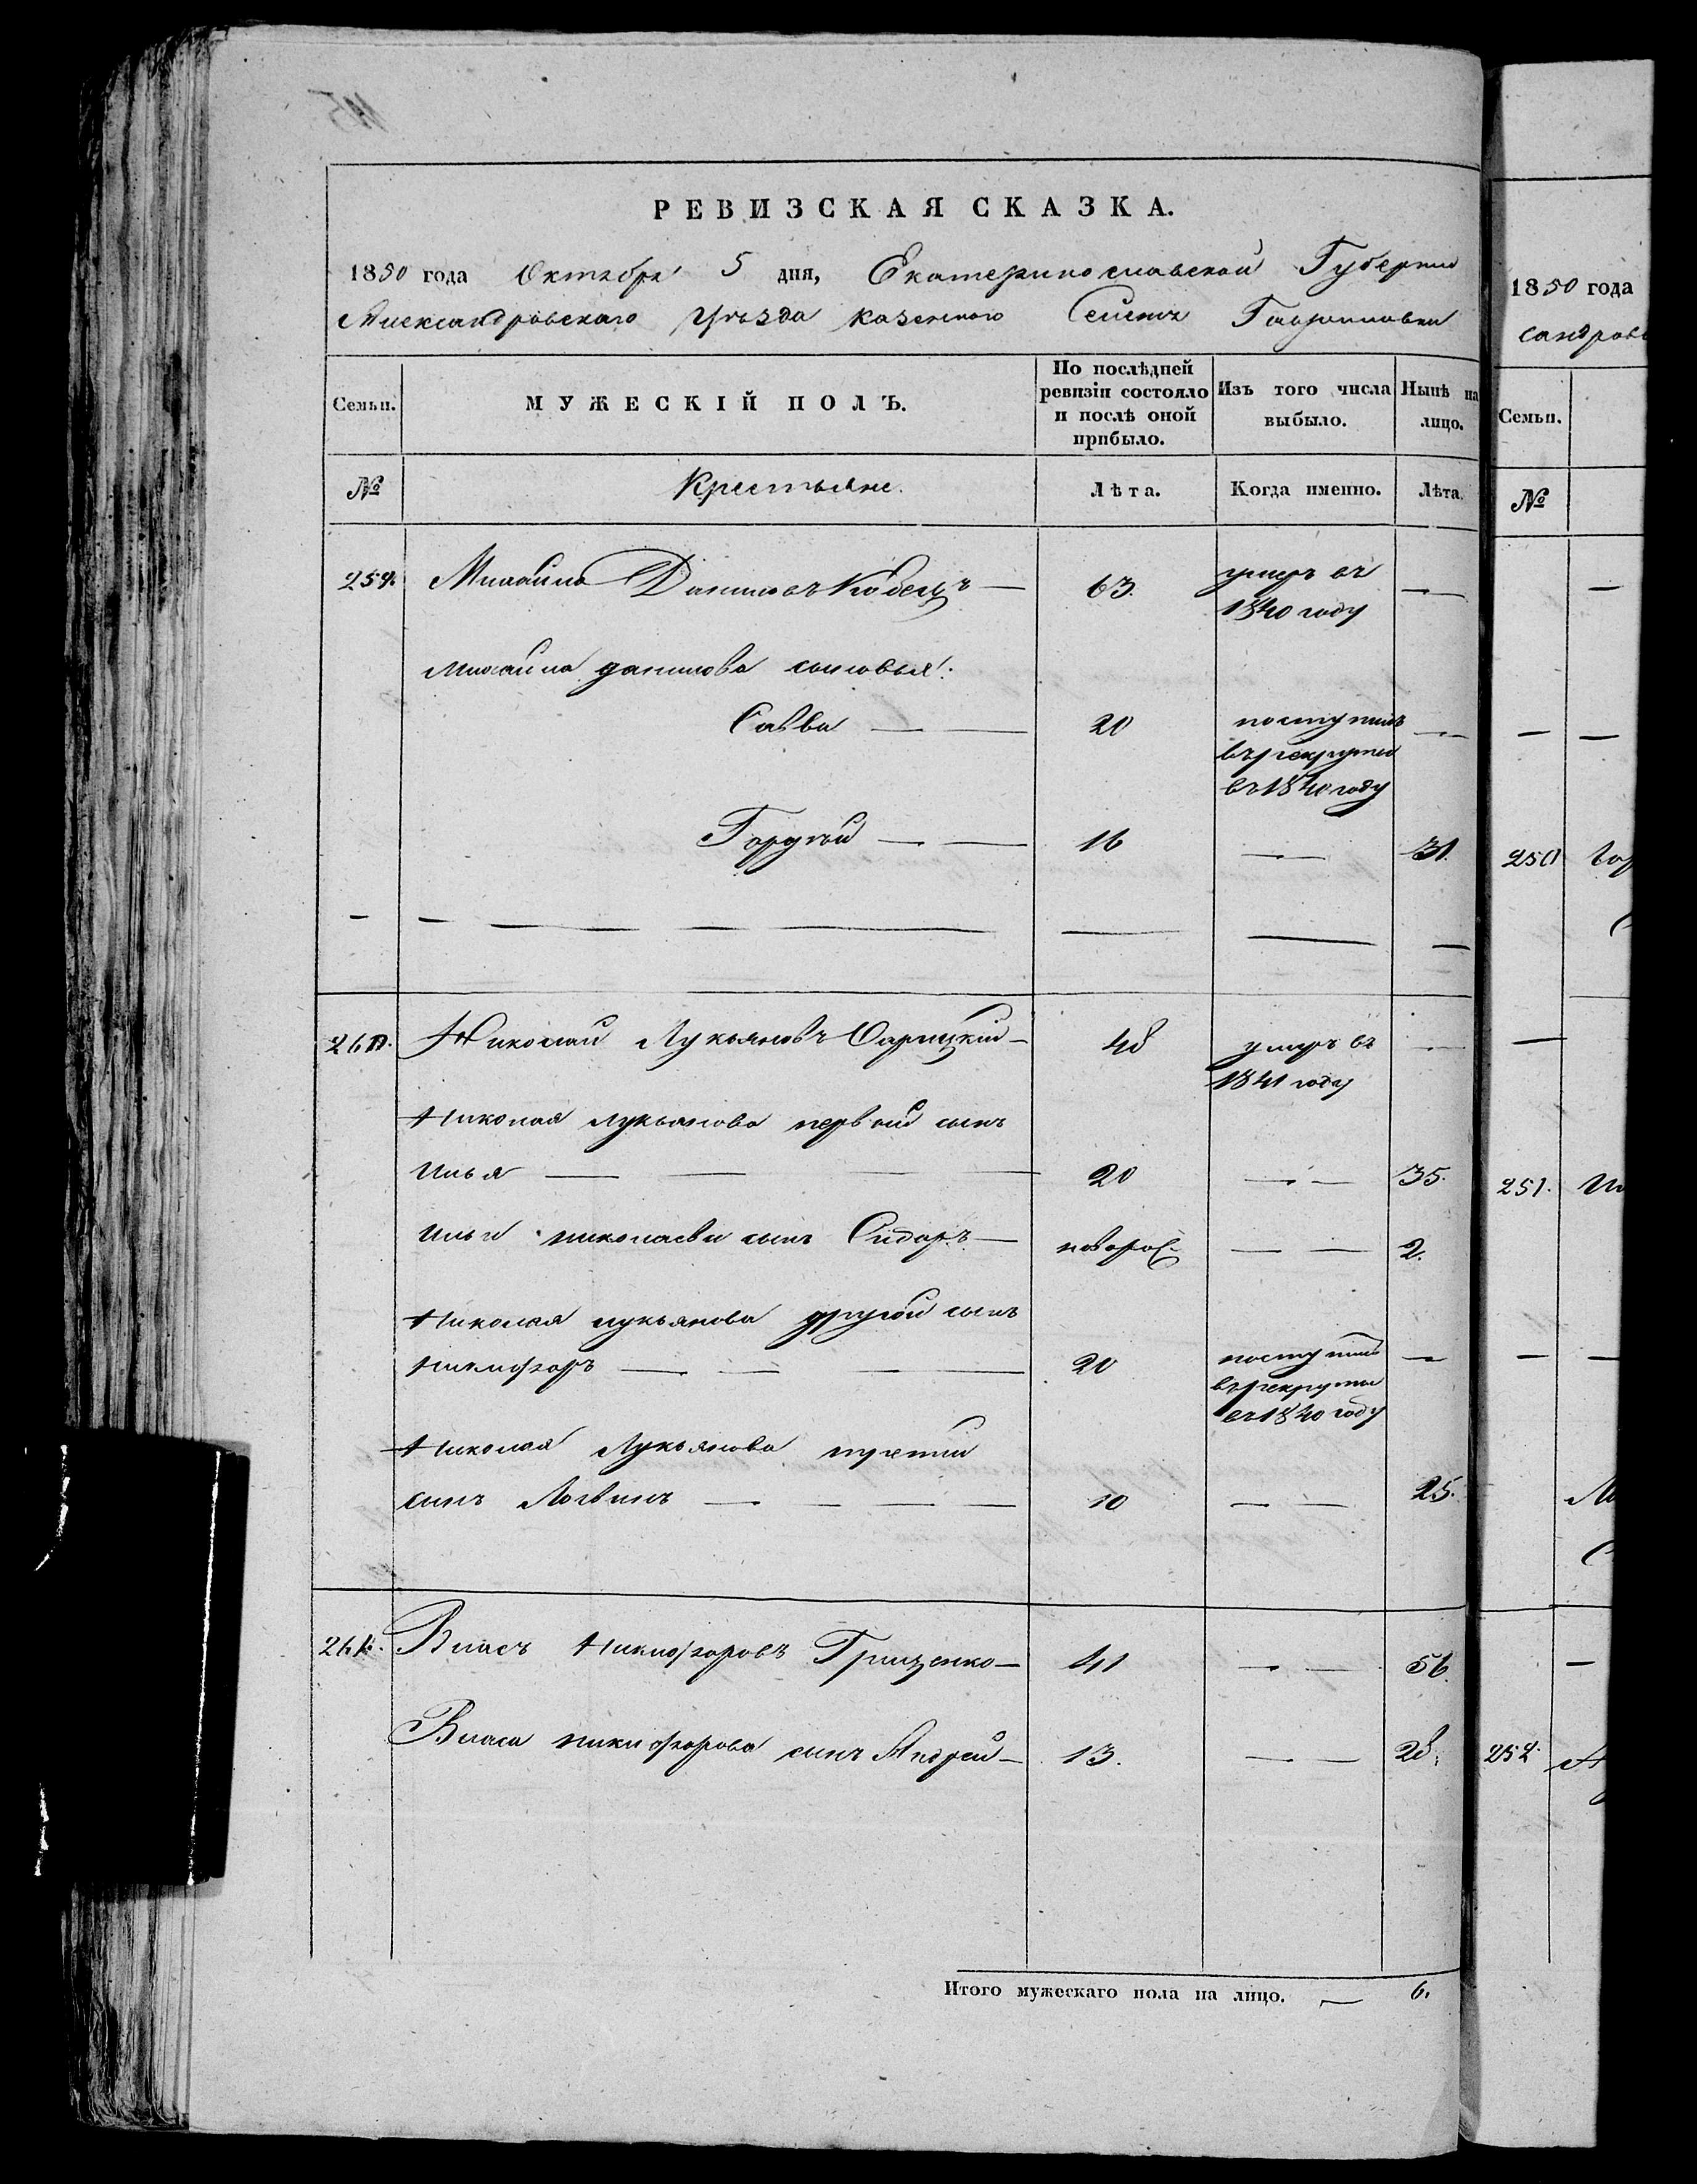 РЕВИЗСКАЯ СКАЗКА.
1850 года Октября 5 дня, Екатеринославской Губернии
Александровскаго Уѣзда казенного Селенія Гавриловки
Семьи. МУЖЕСКІЙ ПОЛЪ. По послѣдней ревизіи состояло и послѣ оной прибыло. Изъ того числа выбыло. Нынѣ на лицо.
№ Крестьяне. Лѣта. Когда именно. Лѣта.
259. Михайло Даниловъ Кобецъ — 63. умеръ въ 1840 году —
Михайла данилова сыновья:
Савва — — 20 поступилъ въ рекруты въ 1840 году —
Гордѣй — — 16 — 31.
260. Николай Лукьяновъ Сарицкій — 48 умеръ въ 1841 году —
Николая лукьянова первой сынъ
Илья — — — 20 — — 35.
Ильи николаева сынъ Сидоръ — новорож. — — 2.
Николая лукьянова другой сынъ
Никифоръ — — — 20 поступилъ въ рекруты въ 1840 году —
Николая Лукьянова третий
сынъ Логвинъ — — — — 10 — — 25.
261. Власъ Никифоровъ Грищенко — 41 — — 56.
Власа никифорова сынъ Андрей — 13. — — 28.
Итого мужескаго пола на лицо. — 6.
1850 года
сандров
Семьи.
№
250
251.
252.